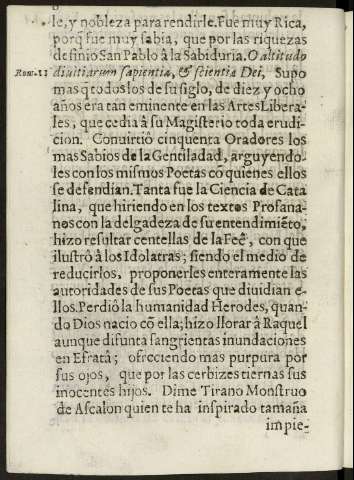 le, y nobleza para rendirle. Fue muy Rica,
porq̃ fue muy sabia, que por las riquezas
definiò San Pablo à la Sabiduria. O altitudo
Rom. 11 divitiarum sapientiæ, & scientiæ Dei, Supo
mas q̃ todos los de su siglo, de diez y ocho
años era tan eminente en las Artes Libera-
les, que cedia à su Magisterio toda erudi-
cion. Convirtiò cinquenta Oradores los
mas Sabios de la Gentiladad, arguyendo-
les con los mismos Poetas cõ quienes ellos
se defendian. Tanta fue la Ciencia de Cata
lina, que hiriendo en los textos Profana-
nos con la delgadeza de su entendimiẽto,
hizo resultar centellas de la Feê, con que
ilustrò à los Idolatras; siendo el medio de
reducirlos, proponerles enteramente las
autoridades de sus Poetas que dividian e-
llos. Perdiò la humanidad Herodes, quan-
do Dios nacio cõ ella; hizo llorar à Raquel
aunque difunta sangrientas inundaciones
en Efratâ; ofreciendo mas purpura por
sus ojos, que por las cerbizes tiernas sus
inocentes hijos. Dime Tirano Monstruo
de Ascalon quien te ha inspirado tamaña
impie-